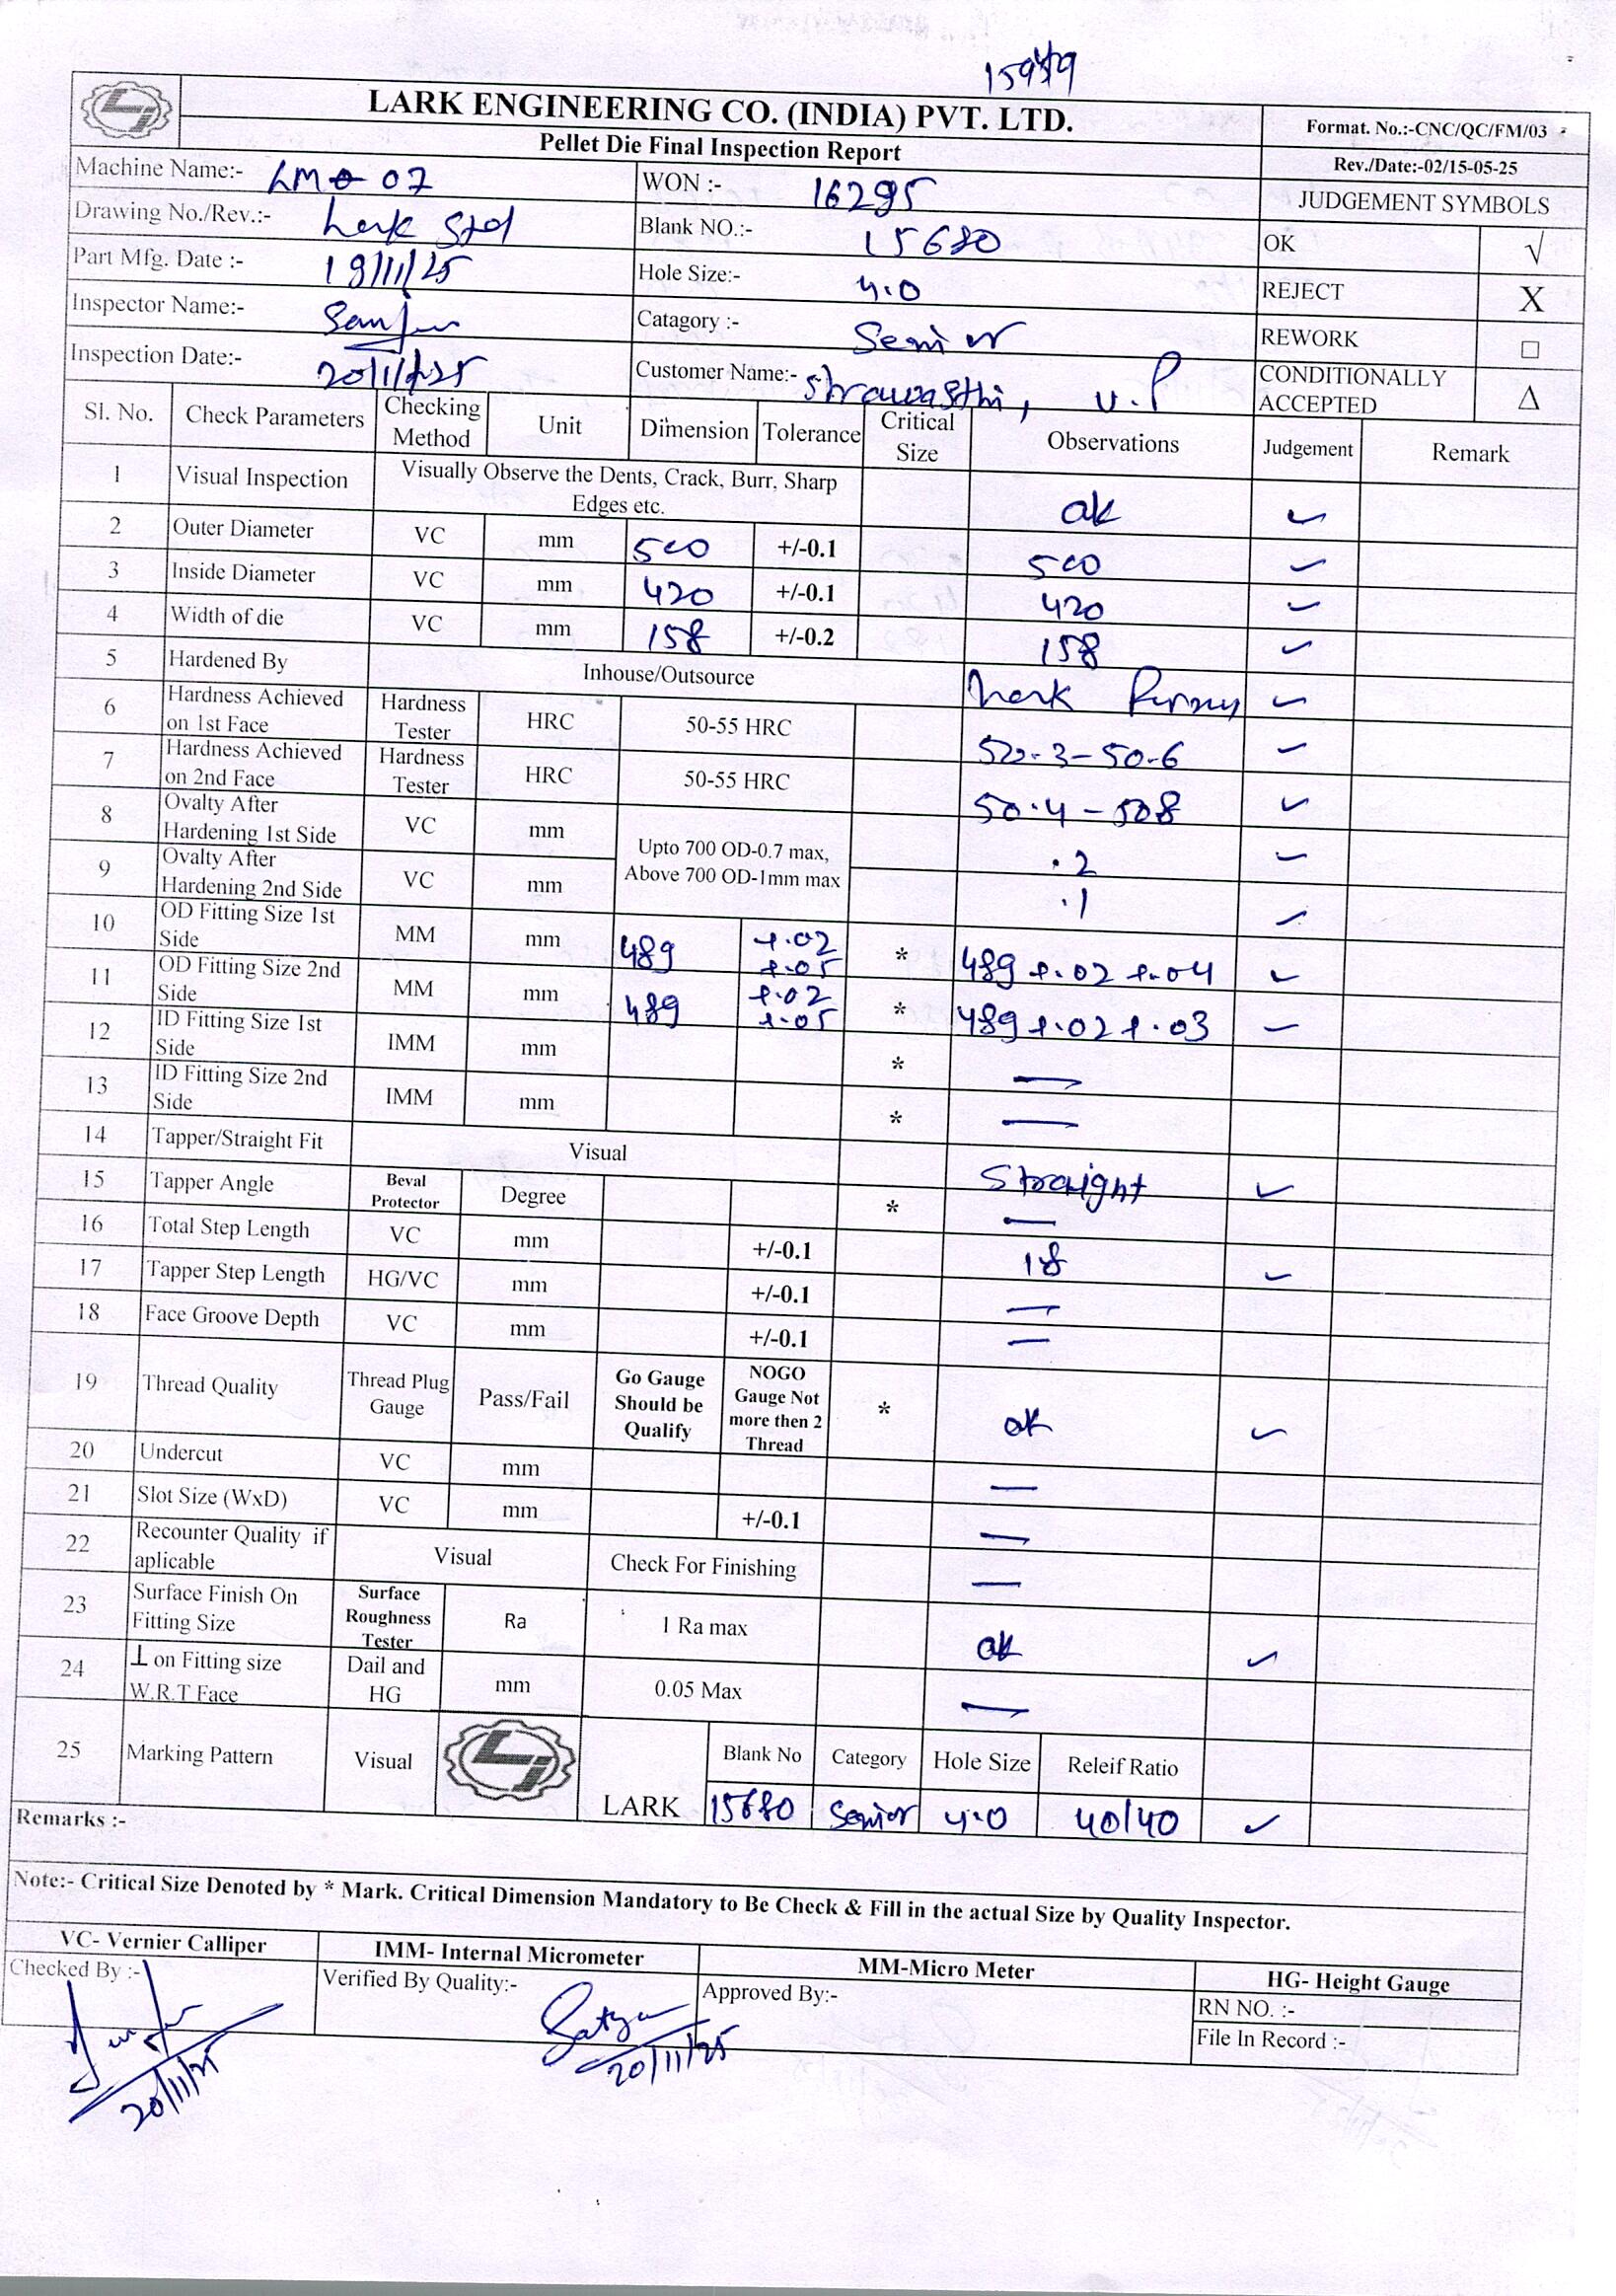 LARK ENGINEERING CO. (INDIA) PVT. LTD.
Format. No.:-CNC/QC/FM/03
Pellet Die Final Inspection Report
Rev./Date:-02/15-05-25
Machine Name:- LM 07 WON :- 16295 JUDGEMENT SYMBOLS
Drawing No./Rev.:- Lark Std Blank NO.:- 15680 OK √
Part Mfg. Date :- 19/11/25 Hole Size:- 4.0 REJECT X
Inspector Name:- Catagory :- Senior REWORK □
Inspection Date:- 20/11/25 Customer Name:- Shrawasthi, U.P CONDITIONALLY ACCEPTED Δ
Sl. No. Check Parameters Checking Method Unit Dimension Tolerance Critical Size Observations Judgement Remark
1 Visual Inspection Visually Observe the Dents, Crack, Burr, Sharp Edges etc. ok ✓
2 Outer Diameter VC mm 500 +/-0.1 500 ✓
3 Inside Diameter VC mm 420 +/-0.1 420 ✓
4 Width of die VC mm 158 +/-0.2 158 ✓
5 Hardened By Inhouse/Outsource Lark ✓
6 Hardness Achieved on 1st Face Hardness Tester HRC 50-55 HRC 50.3-50.6 ✓
7 Hardness Achieved on 2nd Face Hardness Tester HRC 50-55 HRC 50.4-508 ✓
8 Ovalty After Hardening 1st Side VC mm Upto 700 OD-0.7 max, Above 700 OD-1mm max .2 ✓
9 Ovalty After Hardening 2nd Side VC mm .1 ✓
10 OD Fitting Size 1st Side MM mm 489 +.02 +.05 * 489 +.02 +.04 ✓
11 OD Fitting Size 2nd Side MM mm 489 +.02 +.05 * 489 +.02 +.03 ✓
12 ID Fitting Size 1st Side IMM mm * —
13 ID Fitting Size 2nd Side IMM mm * —
14 Tapper/Straight Fit Visual Straight ✓
15 Tapper Angle Beval Protector Degree * —
16 Total Step Length VC mm +/-0.1 18 ✓
17 Tapper Step Length HG/VC mm +/-0.1 —
18 Face Groove Depth VC mm +/-0.1 —
19 Thread Quality Thread Plug Gauge Pass/Fail Go Gauge Should be Qualify NOGO Gauge Not more then 2 Thread * ok ✓
20 Undercut VC mm —
21 Slot Size (WxD) VC mm +/-0.1 —
22 Recounter Quality if aplicable Visual Check For Finishing —
23 Surface Finish On Fitting Size Surface Roughness Tester Ra 1 Ra max ok ✓
24 ⊥ on Fitting size W.R.T Face Dail and HG mm 0.05 Max —
25 Marking Pattern Visual LARK Blank No Category Hole Size Releif Ratio
15680 Senior 4.0 40/40 ✓
Remarks :-
Note:- Critical Size Denoted by * Mark. Critical Dimension Mandatory to Be Check & Fill in the actual Size by Quality Inspector.
VC- Vernier Calliper IMM- Internal Micrometer MM-Micro Meter HG- Height Gauge
Checked By :- Verified By Quality:- Approved By:- RN NO. :-
File In Record :-
20/11/25 20/11/25